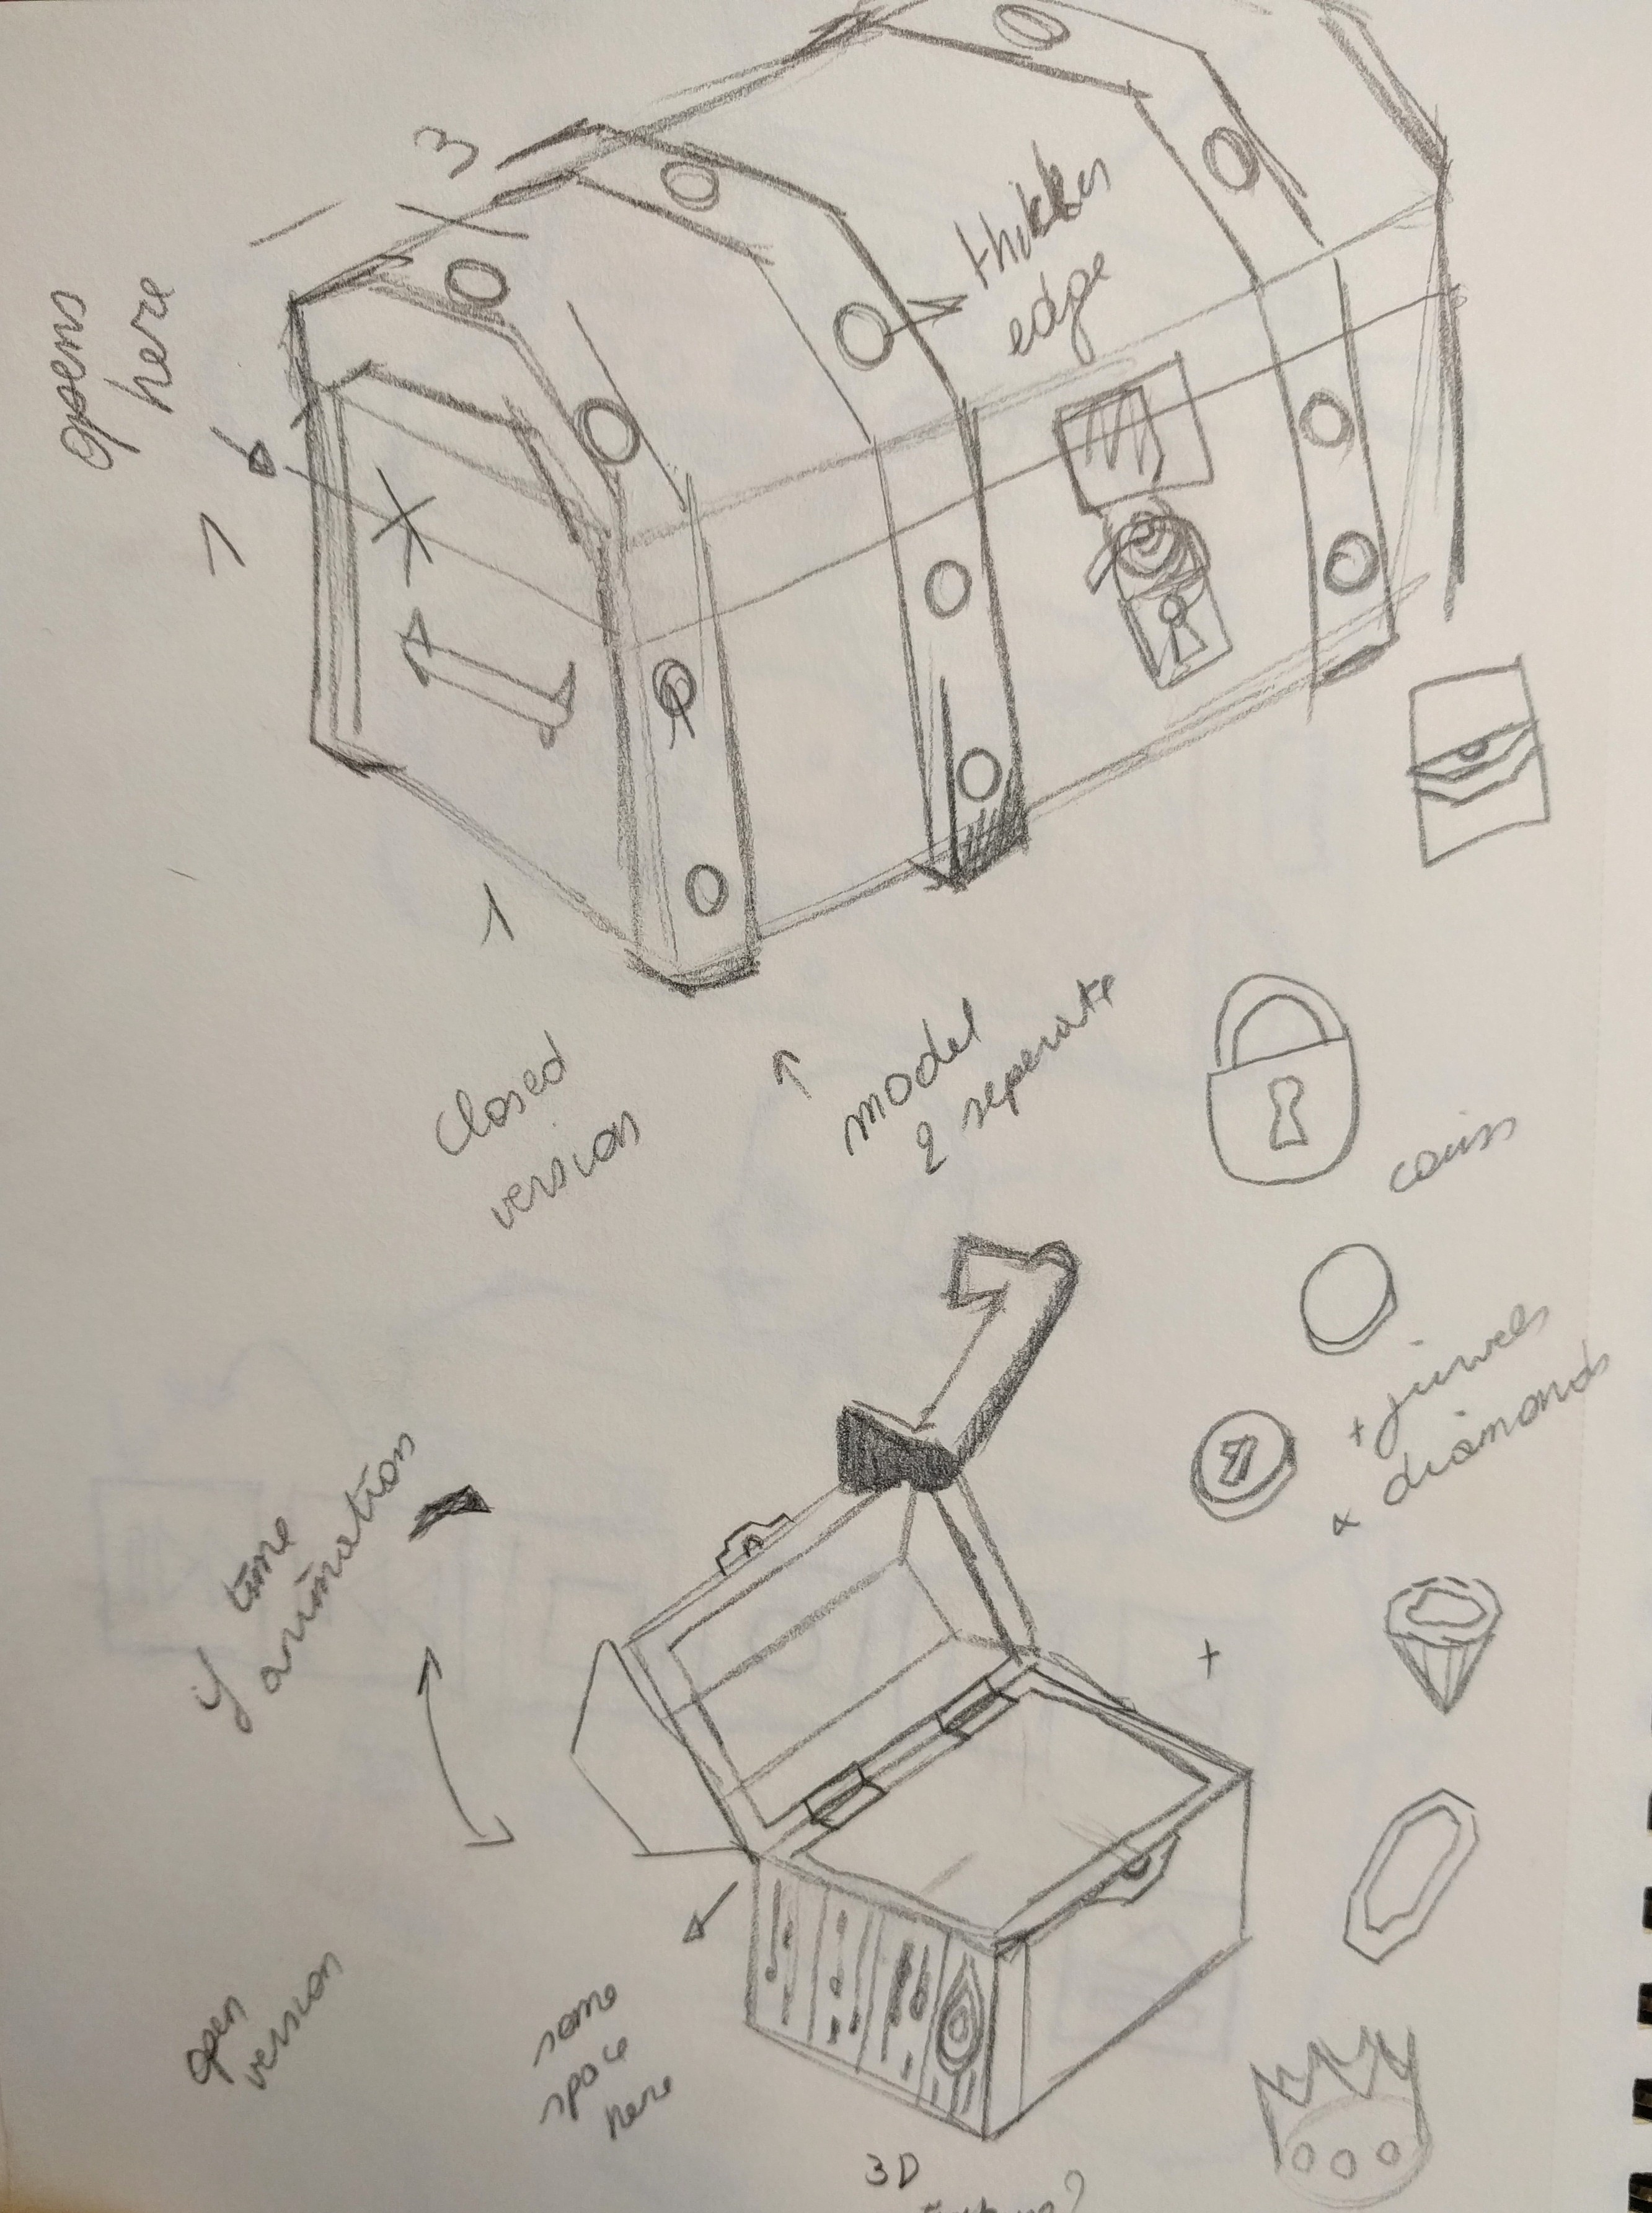 3
opens
here
thikker
edge
1
1
closed
version
model
2 seperate
coins
+ juwels
+ diamonds
if time
animation
+
open
version
some
space
here
3D